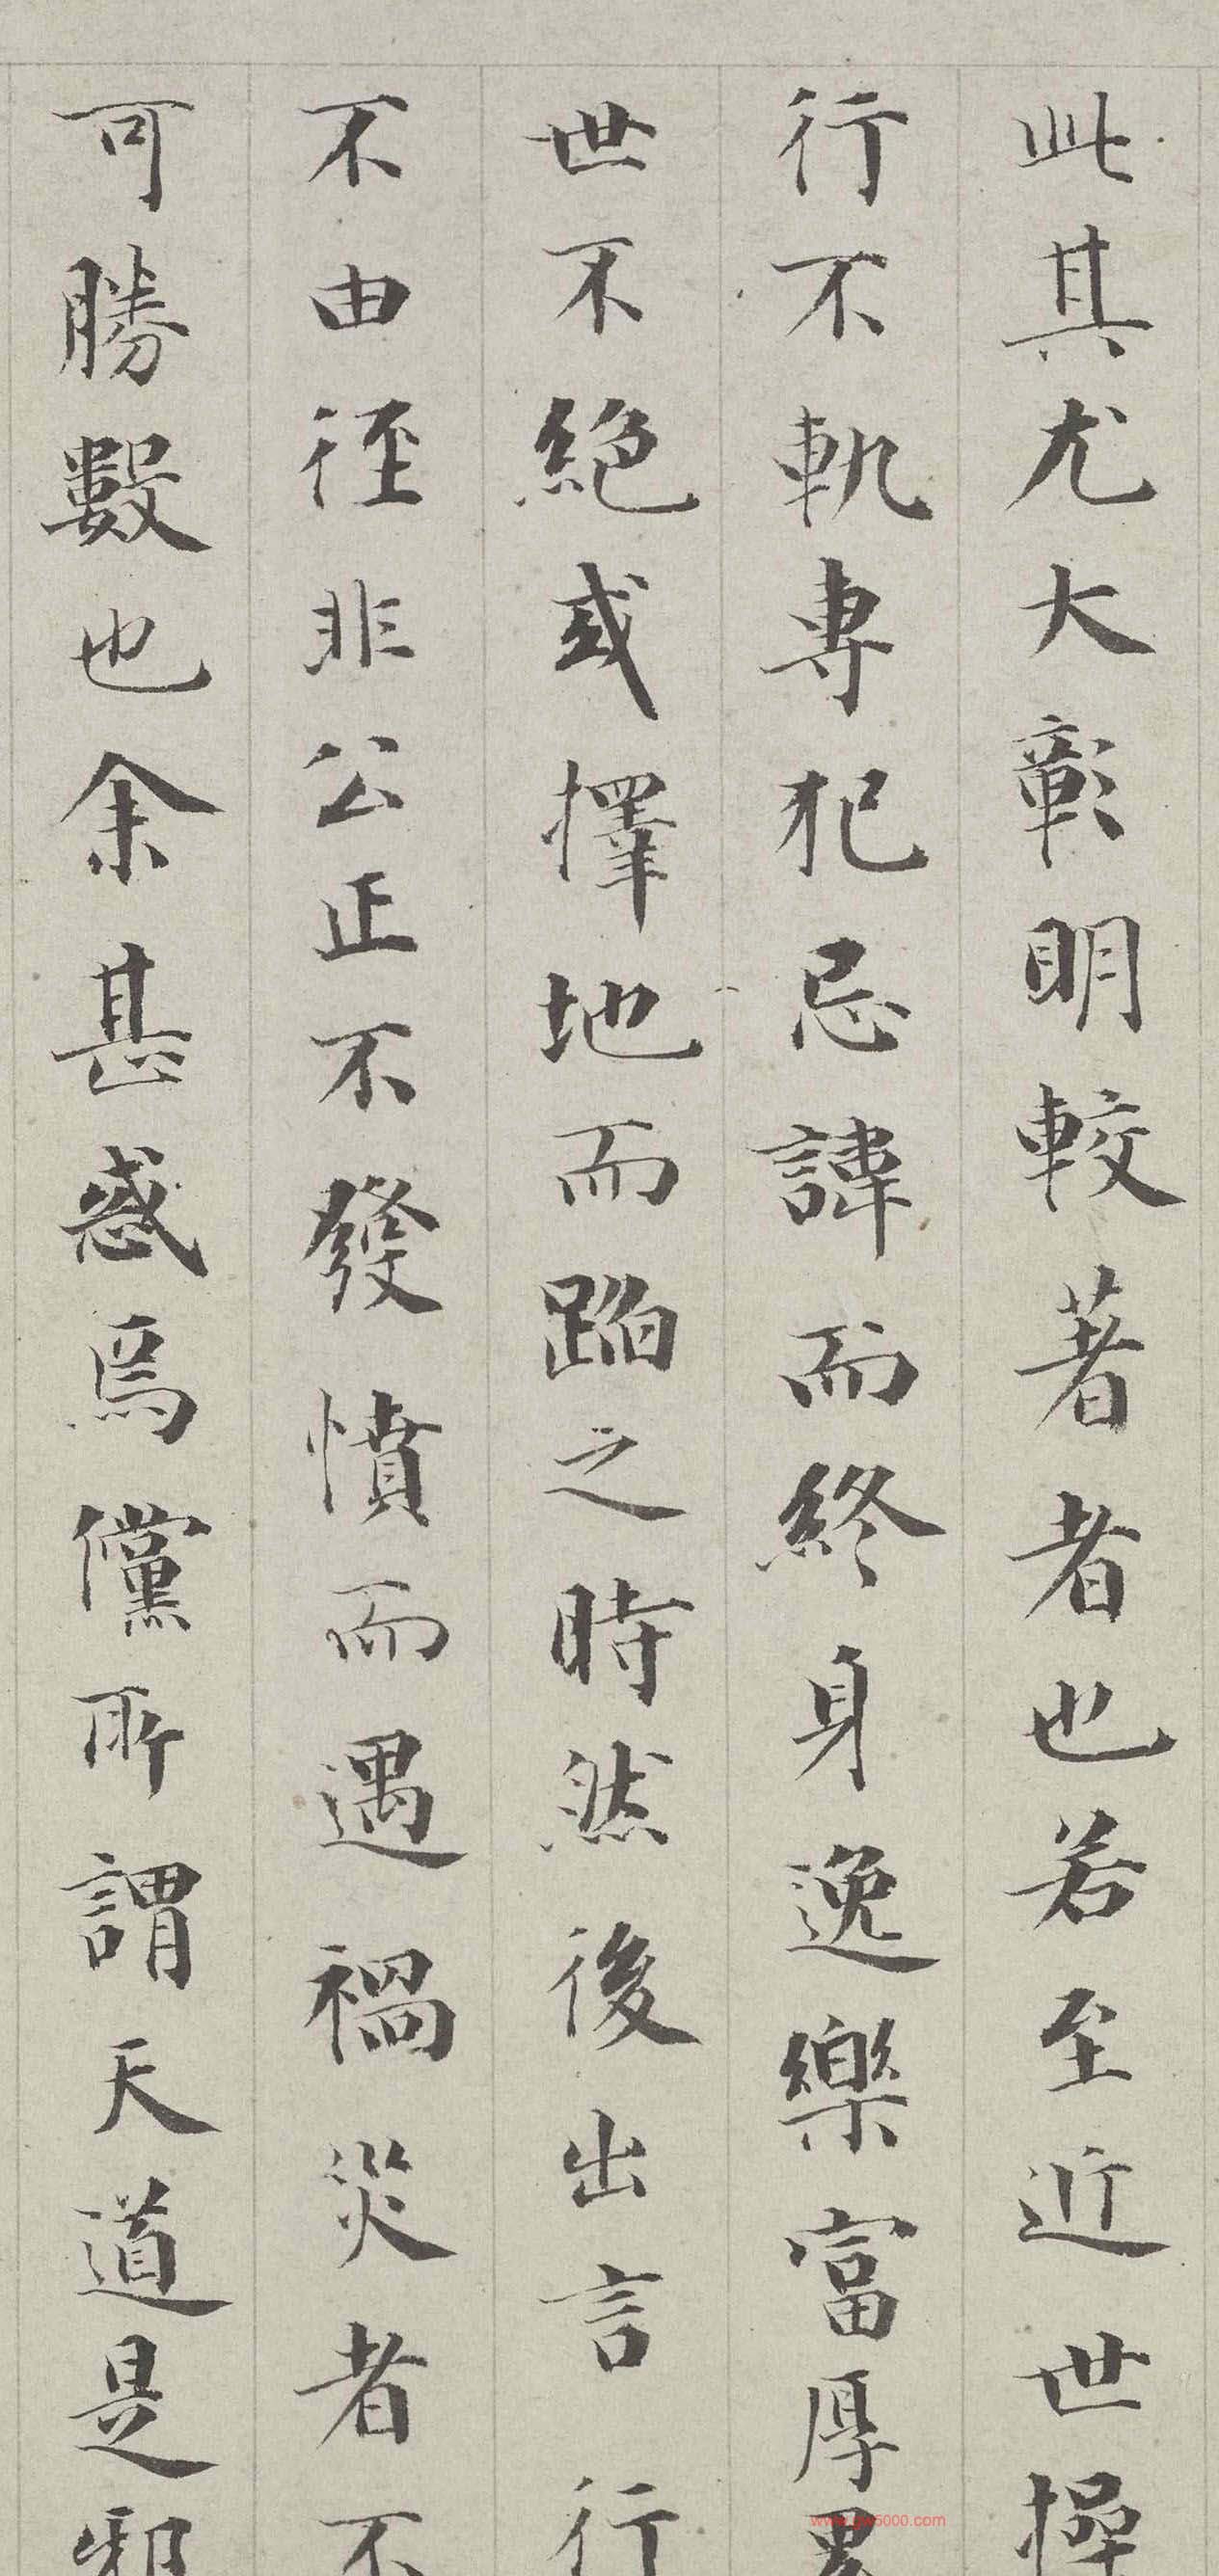 此其尤大彰明較著者也若至近世操
行不軌專犯忌諱而終身逸樂富厚累
世不絕或擇地而蹈之時然後出言行
不由徑非公正不發憤而遇禍災者不
可勝數也余甚惑焉儻所謂天道是邪